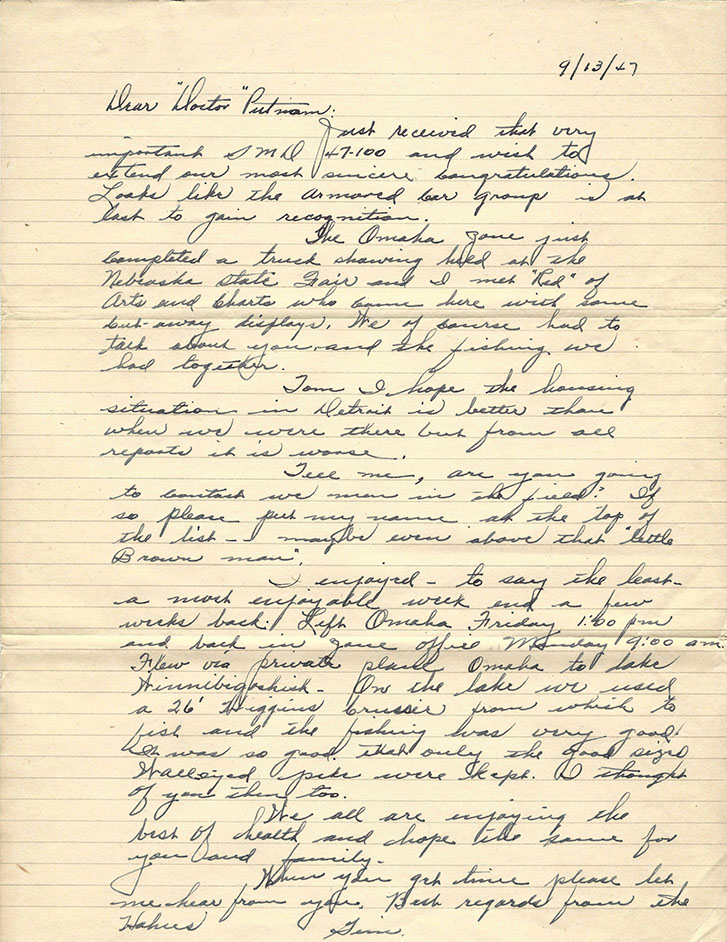 9/13/47
Dear "Doctor" Putnam.
Just received that very
important S M D 47-100 and wish to
extend our most sincere congratulations.
Looks like the armored car group is at
last to gain recognition.
The Omaha zone just
completed a truck showing held at the
Nebraska State Fair and I met "Red" of
Arts and Charts who came here with some
cut-away displays. We of course had to
talk about you and the fishing we
had together.
Tom I hope the housing
situation in Detroit is better than
when we were there but from all
reports it is worse.
Tell me, are you going
to contact we men in the field? If
so please put my name at the top of
the list - maybe even above that "little
Brown man".
I enjoyed - to say the least -
a most enjoyable week end a few
weeks back. Left Omaha Friday 1:00 pm
and back in zone office Monday 9:00 am.
Flew via private plane Omaha to lake
Winnibigoshish - On the lake we used
a 26' Higgins cruiser from which to
fish and the fishing was very good.
It was so good that only the good sized
Walleyed pike were kept. I thought
of you then too.
We all are enjoying the
best of health and hope the same for
you and family.
When you get time please let
me hear from you. Best regards from the